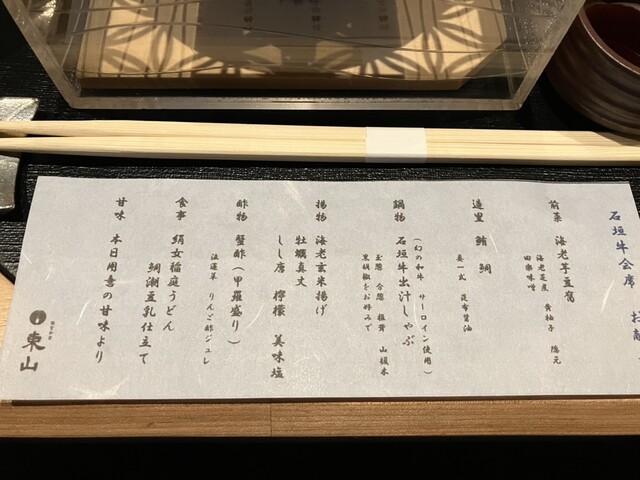 石垣牛会席
前菜 海老芋豆腐
海老芝煮 黄柚子 隠元
田楽味噌
造里 鮪 鯛
妻一式 昆布醤油
鍋物 石垣牛出汁しゃぶ
(幻の和牛 サーロイン使用)
玉葱 合葱 椎茸 山椒末
黒胡椒をお好みで
揚物 海老玄米揚げ
牡蠣真丈
しし唐 檸檬 美味塩
酢物 蟹酢(甲羅盛り)
法蓮草 りんご酢ジュレ
食事 絹女稲庭うどん
鯛潮豆乳仕立て
甘味 本日用意の甘味より
東山